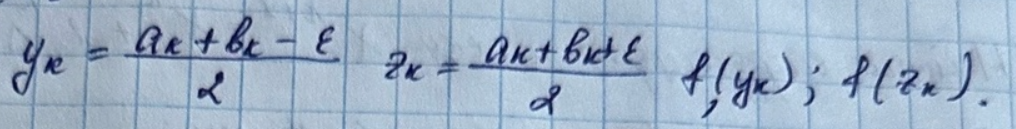 yₖ = (aₖ + bₖ - ε)/2 zₖ = (aₖ + bₖ + ε)/2 f(yₖ); f(zₖ).